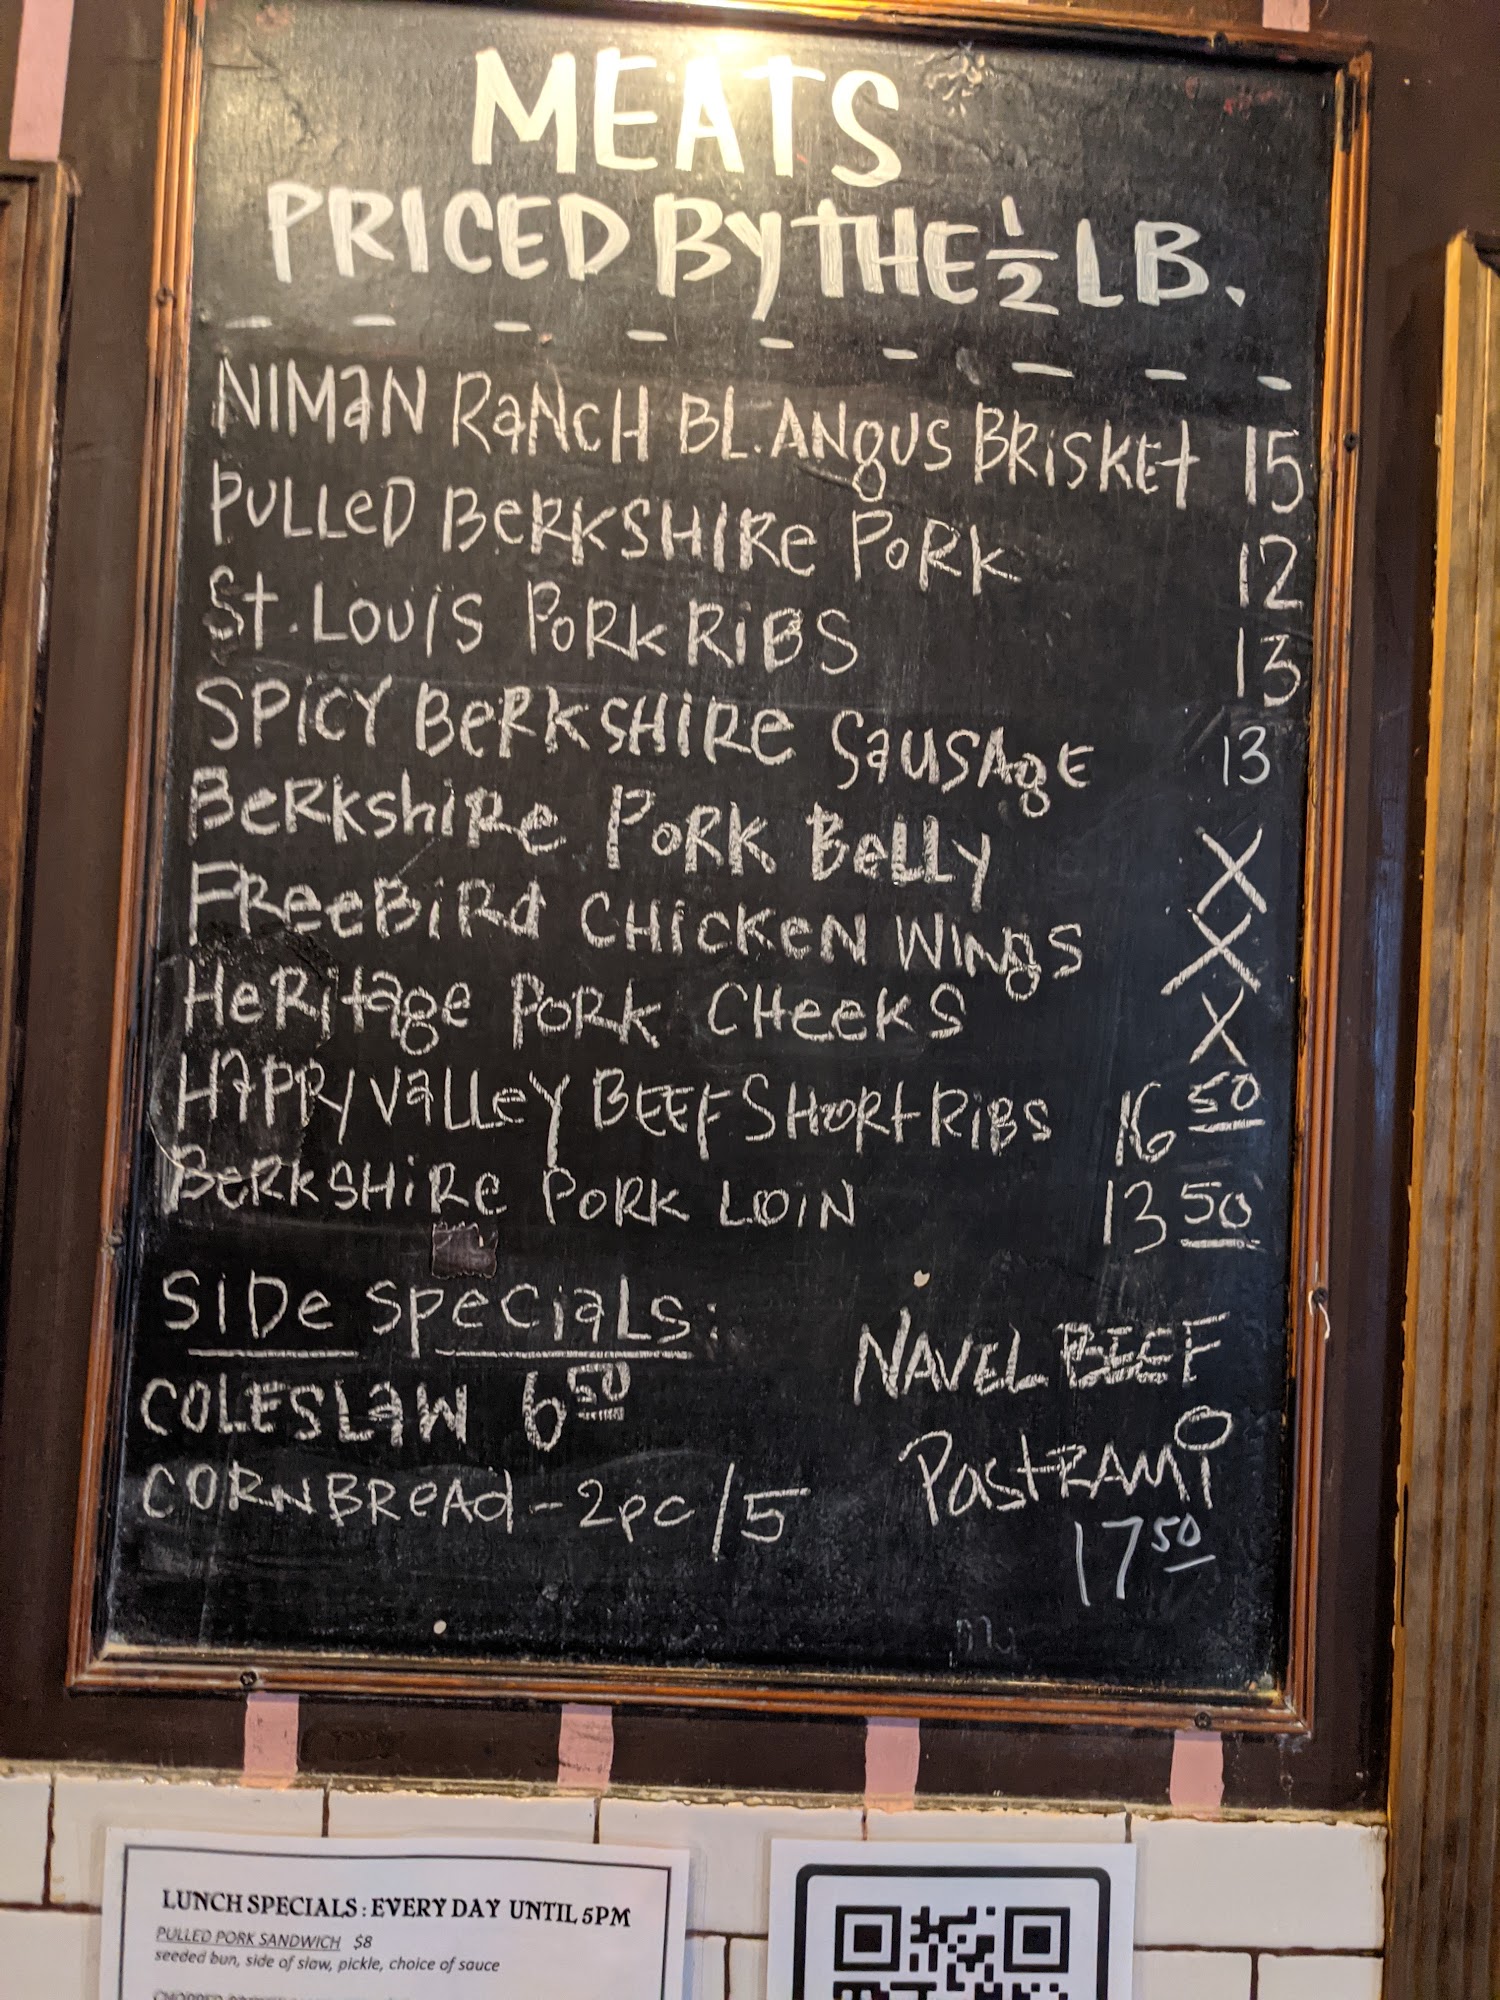 MEATS
PRICED BY THE 1/2 LB.
NIMaN RaNcH BL. ANgUS BRiSKEt 15
PULLeD BeRKSHIRe PoRK 12
St. LOUiS PoRK RiBS 13
SPiCY BeRKSHiRe SaUSAgE 13
BeRKshiRe PoRK BeLLy X
FReeBiRd CHicKeN WiNgS X
HeRitage PoRK CHeeKS X
HaPPy VaLLeY BEEF SHoRt RiBS 16 50
BeRKSHiRe PoRK LOiN 13 50
SiDe SPeCiaLS:
COLESLaW 6 50
CORNBReAd - 2pc / 5
NAVEL BEEF
PastRAMi
17 50
LUNCH SPECIALS : EVERY DAY UNTIL 5PM
PULLED PORK SANDWICH $8
seeded bun, side of slaw, pickle, choice of sauce